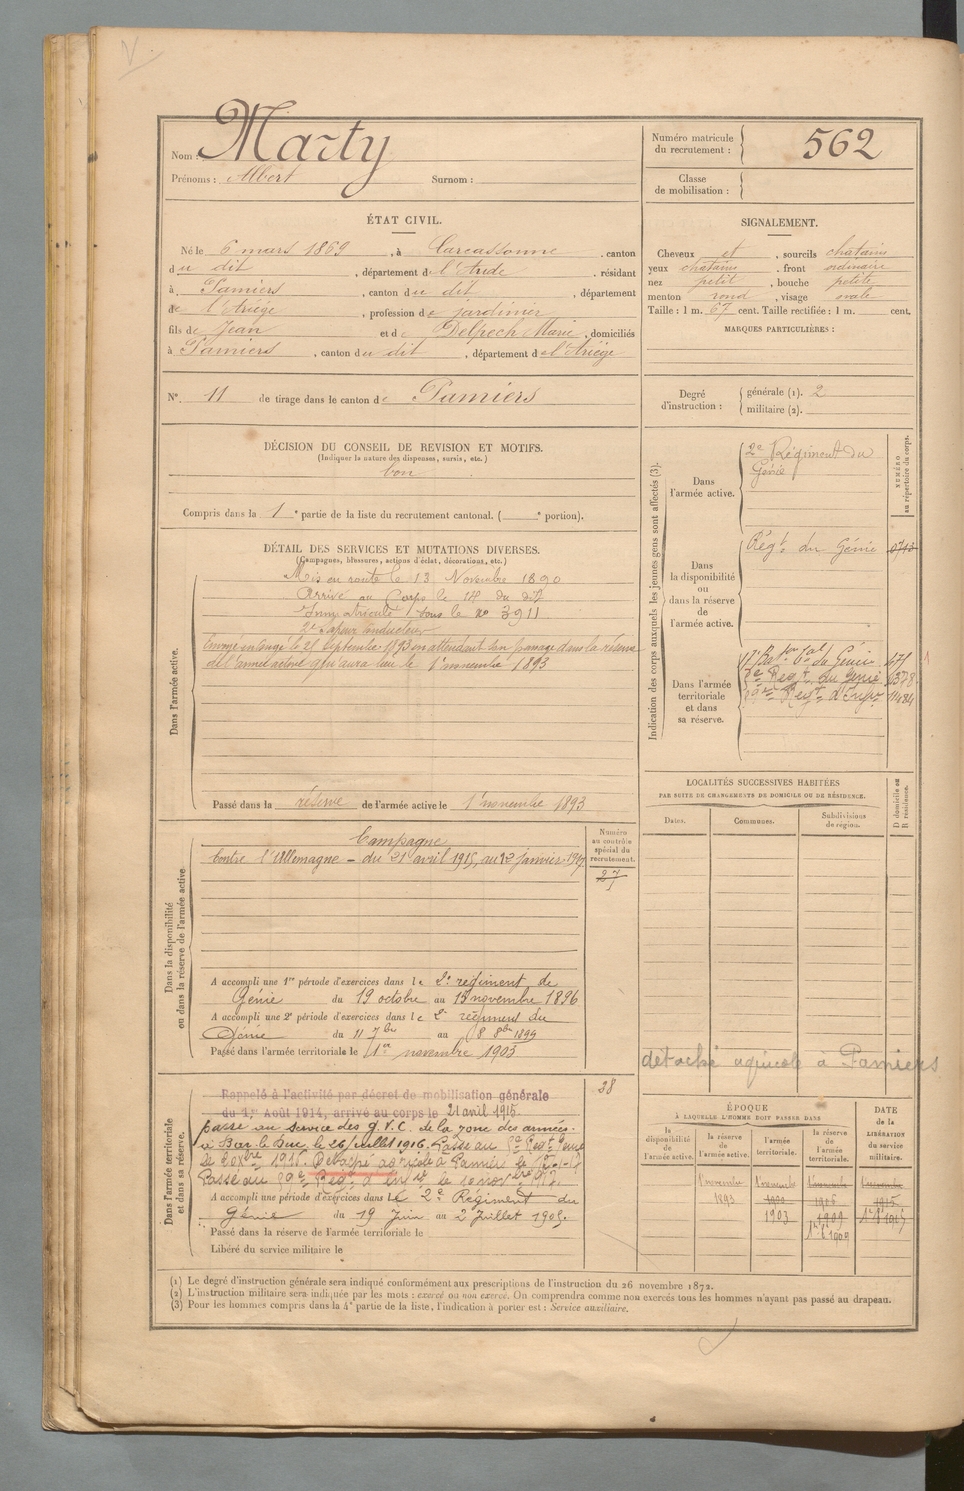 Nom : Marty
Prénoms : Albert Surnom :
Numéro matricule du recrutement : 562
Classe de mobilisation :
ÉTAT CIVIL.
Né le 6 mars 1869, à Carcassonne, canton
du dit, département de l'Aude, résidant
à Pamiers, canton du dit, département
de l'Ariège, profession de jardinier
fils de Jean et de Delpech Marie, domiciliés
à Pamiers, canton du dit, département de l'Ariège
SIGNALEMENT.
Cheveux et, sourcils chatains
yeux chatains, front ordinaire
nez petit, bouche petite
menton rond, visage ovale
Taille : 1 m. 67 cent. Taille rectifiée : 1 m. cent.
MARQUES PARTICULIÈRES :
N° 11 de tirage dans le canton de Pamiers
Degré d'instruction : générale (1). 2
militaire (2).
DÉCISION DU CONSEIL DE REVISION ET MOTIFS.
(Indiquer la nature des dispenses, sursis, etc.)
bon
Compris dans la 1e partie de la liste du recrutement cantonal. ( e portion).
DÉTAIL DES SERVICES ET MUTATIONS DIVERSES.
(Campagnes, blessures, actions d'éclat, décorations, etc.)
Dans l'armée active.
Mis en route le 13 Novembre 1890
Arrivé au Corps le 14 du dit
Immatriculé sous le no 3911
2e Sapeur Conducteur
Envoyé en congé le 21 septembre 1893 en attendant son passage dans la réserve
de l'armée active qui aura lieu le 1er novembre 1893
Passé dans la réserve de l'armée active le 1er novembre 1893
Indication des corps auxquels les jeunes gens sont affectés (3).
NUMÉRO au répertoire du corps.
Dans l'armée active.
2e Régiment du
Génie
Dans la disponibilité ou dans la réserve de l'armée active.
Régt du Génie
Dans l'armée territoriale et dans sa réserve.
17e Baton tal du Génie
2e Regt du Génie
LOCALITÉS SUCCESSIVES HABITÉES
PAR SUITE DE CHANGEMENTS DE DOMICILE OU DE RÉSIDENCE.
Dates. Communes. Subdivisions de région. D domicile ou R résidence.
détaché agricole à Pamiers
Dans la disponibilité ou dans la réserve de l'armée active.
Numéro au contrôle spécial du recrutement.
27
Campagne
Contre l'Allemagne - du 21 avril 1915, au 12 janvier 1917
A accompli une 1re période d'exercices dans le 2e régiment de
Génie du 19 octobre au 15 novembre 1896
A accompli une 2e période d'exercices dans le 2e régiment du
Génie du 11 7bre au 8 8bre 1899
Passé dans l'armée territoriale le 1er novembre 1903
Dans l'armée territoriale et dans sa réserve.
38
Rappelé à l'activité par décret de mobilisation générale
du 1er Août 1914, arrivé au corps le 21 avril 1915.
passé au service des G.V.C. de la zone des armées
à Bar-le-Duc, le 26 juillet 1916. Passé au 2e Regt Génie
Détaché agricole à Pamiers
A accompli une période d'exercices dans le 2e Régiment du
Génie du 19 Juin au 2 Juillet 1905.
Passé dans la réserve de l'armée territoriale le
Libéré du service militaire le
ÉPOQUE
A LAQUELLE L'HOMME DOIT PASSER DANS
la disponibilité de l'armée active. la réserve de l'armée active. l'armée territoriale. la réserve de l'armée territoriale.
DATE de la LIBÉRATION du service militaire.
1 novembre 1 novembre 1 novembre 1 novembre
1893 1900 1906 1915
1903 1909
(1) Le degré d'instruction générale sera indiqué conformément aux prescriptions de l'instruction du 26 novembre 1872.
(2) L'instruction militaire sera indiquée par les mots : exercé ou non exercé. On comprendra comme non exercés tous les hommes n'ayant pas passé au drapeau.
(3) Pour les hommes compris dans la 4e partie de la liste, l'indication à porter est : Service auxiliaire.